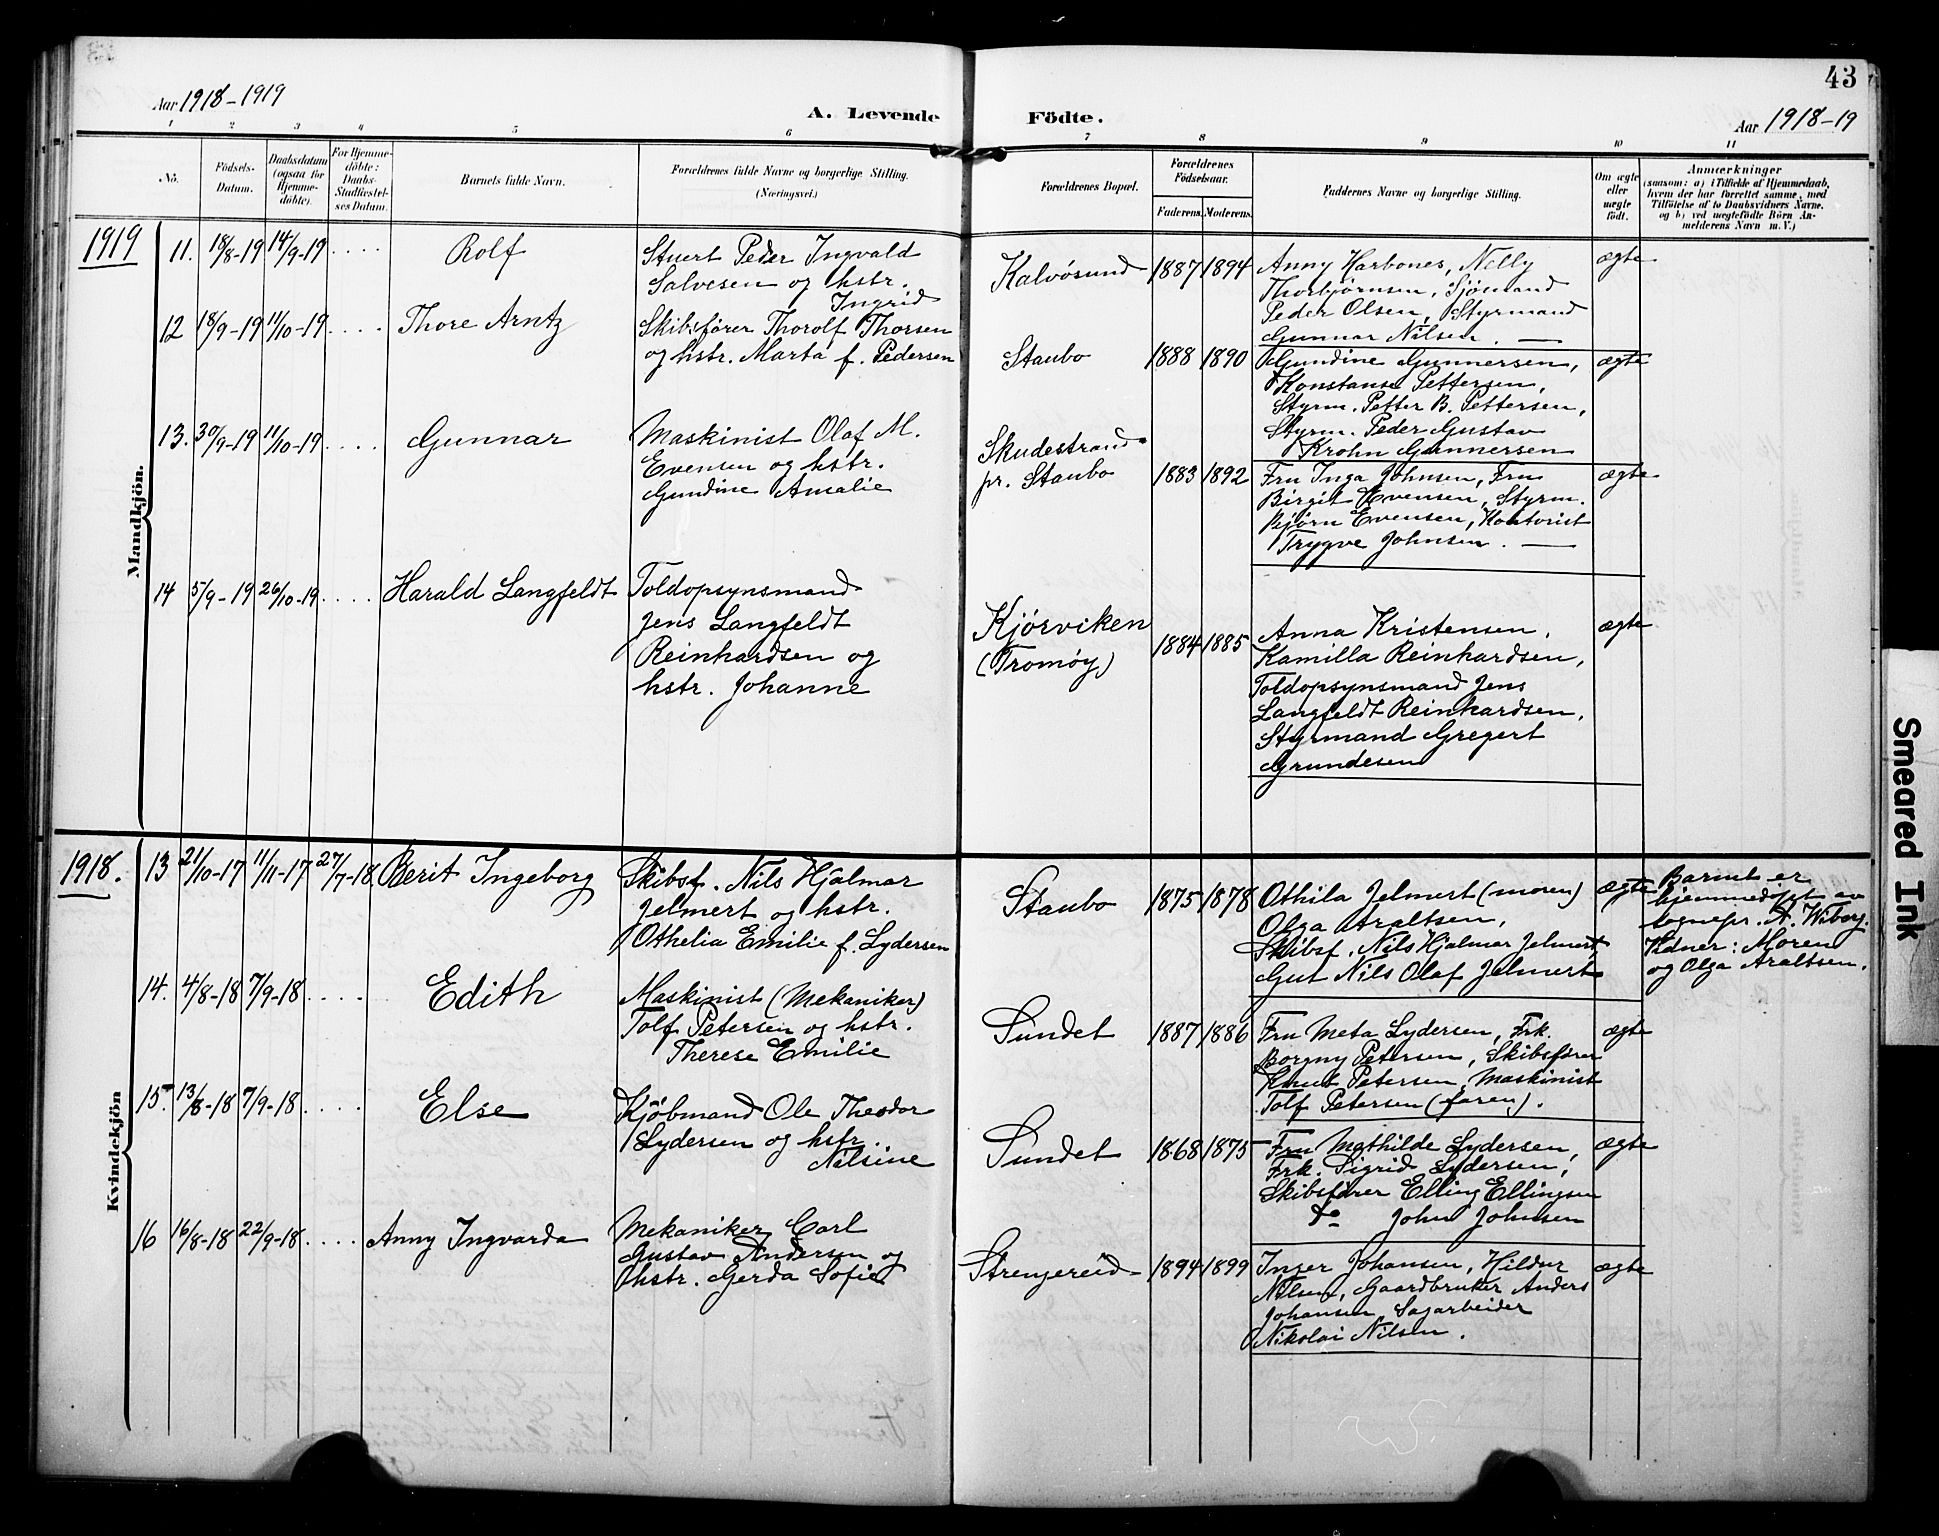 43
Aar 1918-1919
A. Levende Födte.
Aar 1918-19
1 2 3 4 5 6 7 8 9 10 11
No.
Födsels-
Datum.
Daabsdatum
(ogsaa for
Hjemme-
döbte).
For Hjemme-
döbte:
Daabs-
Stadfæstel-
ses Datum.
Barnets fulde Navn.
Forældrenes fulde Navne og borgerlige Stilling.
(Næringsvei.)
Forældrenes Bopæl.
Forældrenes
Födselsaar.
Faderens. Moderens.
Faddernes Navne og borgerlige Stilling.
Om ægte
eller
uægte
födt.
Anmærkninger
(saasom: a) i Tilfælde af Hjemmedaab,
hvem der har forrettet samme, med
Tilföielse af to Daabsvidners Navne,
og b) ved uegtefödte Börn An-
melderens Navn m. V.)
Mandkjön.
1919
11. 18/8-19 14/9-19 ....
Rolf
Stuert Peder Ingvald
Salvesen og hstr.
Ingrid
Kalvøsund
1887 1894
Anny Harbones, Nelly
Thorbjørnsen, Sjømand
Peder Olsen, Styrmand
Gunnar Nilsen. —
ægte
12 18/9-19 11/10-19 ....
Thore Arntz
Skibsfører Thorolf Thorsen
og hstr. Marta f. Pedersen
Staubo
1888 1890
Gundine Gunnersen,
Konstanse Pettersen,
Styrm. Petter B. Pettersen,
Styrm. Peder Gustav
Krohn Gunnersen
ægte
13. 30/9-19 11/10-19 ....
Gunnar
Maskinist Olaf M.
Evensen og hstr.
Gundine Amalie
Skudestrand
pr. Staubo
1883 1892
Fru Inga Johnsen, Fru
Birgit Evensen, Styrm.
Bjørn Evensen, Kontorist
Trygve Johnsen. —
ægte
14 5/9-19 26/10-19 ....
Harald Langfeldt
Toldopsynsmand
Jens Langfeldt
Reinhardsen og
hstr. Johanne
Kjørviken
(Tromøy)
1884 1885
Anna Kristensen,
Kamilla Reinhardsen,
Toldopsynsmand Jens
Langfeldt Reinhardsen,
Styrmand Gregert
Grundesen
ægte
Kvindekjön
1918.
13 21/10-17 11/11-17 27/7-18
Berit Ingeborg
Skibsf. Nils Hjalmar
Jelmert og hstr.
Othelia Emilie f. Lydersen
Staubo
1875 1878
Othila Jelmert (moren)
Olga Araltsen,
Skibsf. Nils Hjalmar Jelmert,
Gut Nils Olaf Jelmert
ægte
Barnet er
hjemmedøpt av
sognepr. N. Wiborg.
Vidner: Moren
og Olga Araltsen.
14. 4/8-18 7/9-18 ....
Edith
Maskinist (Mekaniker)
Tolf Petersen og hstr.
Therese Emilie
Sundet
1887 1886
Fru Meta Lydersen, Frk.
Borgny Petersen, Skibsfører
Knut Petersen, Maskinist
Tolf Petersen (faren).
ægte
15. 13/8-18 7/9-18 ....
Else
Kjøbmand Ole Theodor
Lydersen og hstr.
Nilsine
Sundet
1868 1875
Fru Mathilde Lydersen,
Frk. Sigrid Lydersen,
Skibsfører Elling Ellingsen
do John Johnsen
ægte
16 16/8-18 22/9-18 ....
Anny Ingvarda
Mekaniker Carl
Gustav Andersen og
hstr. Gerda Sofie
Strengereid
1894 1899
Inger Johansen, Hildur
Nilsen, Gaardbruker Anders
Johansen, Sagarbeider
Nikolai Nilsen.
ægte
Smeared Ink